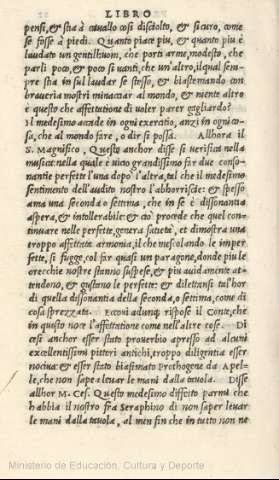 LIBRO
pensi, & stia à cauallo così disciolto, & sicuro, come
se fosse à piedi. Quanto piace piu, & quanto piu è
laudato un gentilhuom, che porti arme, modesto, che
parli poco, & poco si uanti, che un'altro, il qual sem-
pre stia in sul laudar se stesso, & biastemando con
braueria mostri minacciar al mondo, & niente altro
è questo che affettatione di uoler parer gagliardo?
Il medesimo accade in ogni exercitio, anzi in ogni co-
sa, che al mondo fare, o dir si possa. Allhora il
S. Magnifico, Questo anchor disse si uerifica nella
musica: nella quale è uicio grandissimo far due conso-
nantie perfette l'una dopo l'altra, tal che il medesimo
sentimento dell'audito nostro l'abborrisce: & spesso
ama una seconda o settima, che in se è dissonantia
aspera, & intollerabile: & ciò procede che quel con-
tinuare nelle perfette, genera satietà, et dimostra una
troppo affettata armonia, il che mescolando le imper
fette, si fugge, col far quasi un paragone, donde piu le
orecchie nostre stanno suspese, & piu auidamente at-
tendono, & gustano le perfette: & dilettansi tal'hor
di quella dissonantia della seconda, o settima, come di
cosa sprezzata. Eccoui adunque rispose il Conte, che
in questo noce l'affettatione come nell'altre cose. Di
cesi anchor esser stato prouerbio apresso ad alcuni
excellentissimi pittori antichi, troppo diligentia esser
nociua: & esser stato biasimato Prothogene da Apel-
le, che non sapea leuar le mani dalla tauola. Disse
allhor M. Ces. Questo medesimo diffetto parmi che
habbia il nostro fra Seraphino di non saper leuar
le mani dalla tauola, al men fin che in tutto non ne
Ministerio de Educación, Cultura y Deporte